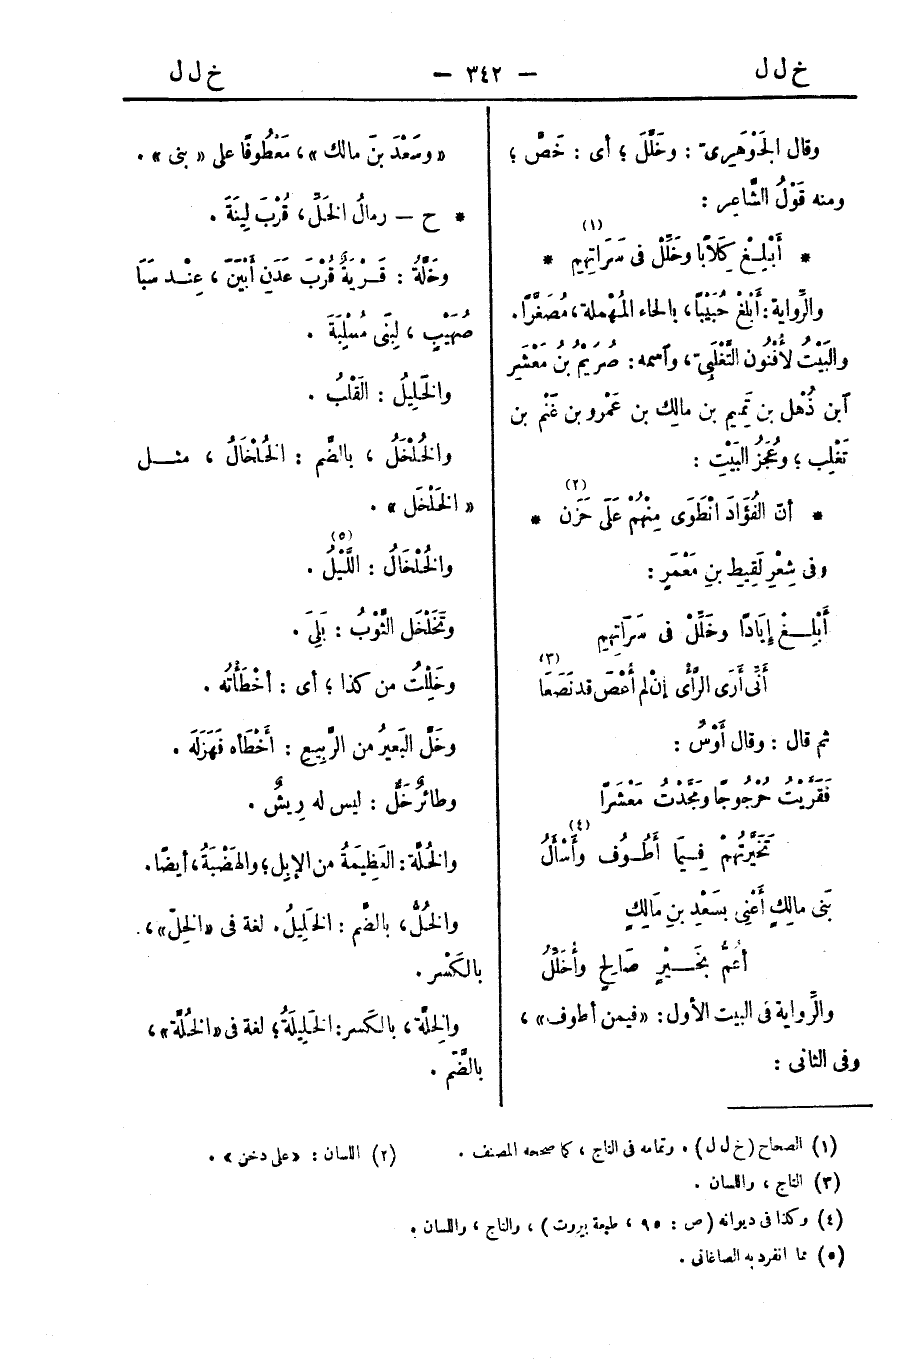 خ ل ل — ٣٤٢ — خ ل ل
وقال الجَوْهَرِىّ : وخَلَّلَ ؛ أى : خَصَّ ؛
ومنه قَوْلُ الشَّاعِر :
* أَبْلِـغْ كِلَابًا وخَلِّلْ فى سَرَاتِهِم (١) *
والرِّواية : أَبْلِغْ حُبَيْبًا ، بالحاء المُهْملة ، مُصَغَّرًا .
والبَيْتُ لأُفْنُون التَّغْلَبِىّ ، وٱسمه : صُرَيْمُ بنُ مَعْشَر
ٱبن ذُهْل بن تَمِيم بن مالك بن عَمْرو بن غَنْم بن
تَغْلِب ؛ وعَجُزُ البَيْتِ :
* أنّ الفُؤَادَ انْطَوَى مِنْهُمْ عَلَى حَزَن (٢) *
وفى شِعْرِ لَقِيطِ بنِ مَعْمَرٍ :
أَبْلِــغْ إِيَادًا وخَلِّلْ فى سَرَاتِهِم
أَنِّى أَرَى الرَّأْىَ إنْ لم أُعْصَ قد نَصَعَا (٣)
ثم قال : وقال أَوْسٌ :
فَقَرَّبْتُ حُرْجُوجًا ومَجَّدْتُ مَعْشَرًا
تَخَيَّرْتُهُمْ فِـيمَا أَطُوف وأَسْأَلُ (٤)
بَنى مالِكٍ أَعْنِى بسَعْدِ بنِ مَالِكٍ
أعُمُّ بخَــيْرٍ صَالِحٍ وأُخَلِّلُ
والرِّواية فى البيت الأول : «فيمن أطوف» ،
وفى الثانى :
«وسَعْدَ بنَ مالك» ، مَعْطُوفًا على «بنى» .
* ح — رمالُ الخَلِّ ، قُرْبَ لِينَةَ .
وخَلَّةُ : قَـرْيَةٌ قُرْبَ عَدَنِ أَبْيَنَ ، عِنْـد سَبَا
صُهَيْبٍ ، لِبَنِى مُسْلِيَةَ .
والخَلِيلُ : القَلْبُ .
والخُلْخَلُ ، بالضَّم : الخَلْخَالُ ، مثــل
«الخَلْخَل» .
والخُلْخَالُ : اللَّيْلُ (٥) .
وتَخَلْخَل الثَّوْبُ : بَلِىَ .
وخَلِلْتُ من كذا ؛ أى : أخْطَأْتُه .
وخَلَّ البَعيرُ من الرَّبِيعِ : أَخْطَأه فَهَزَلَه .
وطائرٌ خَلٌّ : ليس له رِيشٌ .
والخُلَّة : العَظِيمَةُ من الإبِل ؛ والهَضْبَةُ ، أيضًا .
والخُلُّ ، بالضَّم : الخَلِيلُ . لغة فى «الخِلّ» ،
بالكَسْر .
والخِلَّة ، بالكَسر : الخَلِيلَةُ ؛ لغة فى «الخُلَّة» ،
بالضَّمّ .
(١) الصحاح (خ ل ل) . وتمامه فى التاج ، كما صححه المصنف . (٢) اللسان : «على دخن» .
(٣) التاج ، واللسان .
(٤) وكذا فى ديوانه (ص : ٩٥ ، طبعة بيروت) ، والتاج ، واللسان .
(٥) مما انفرد به الصاغانى .